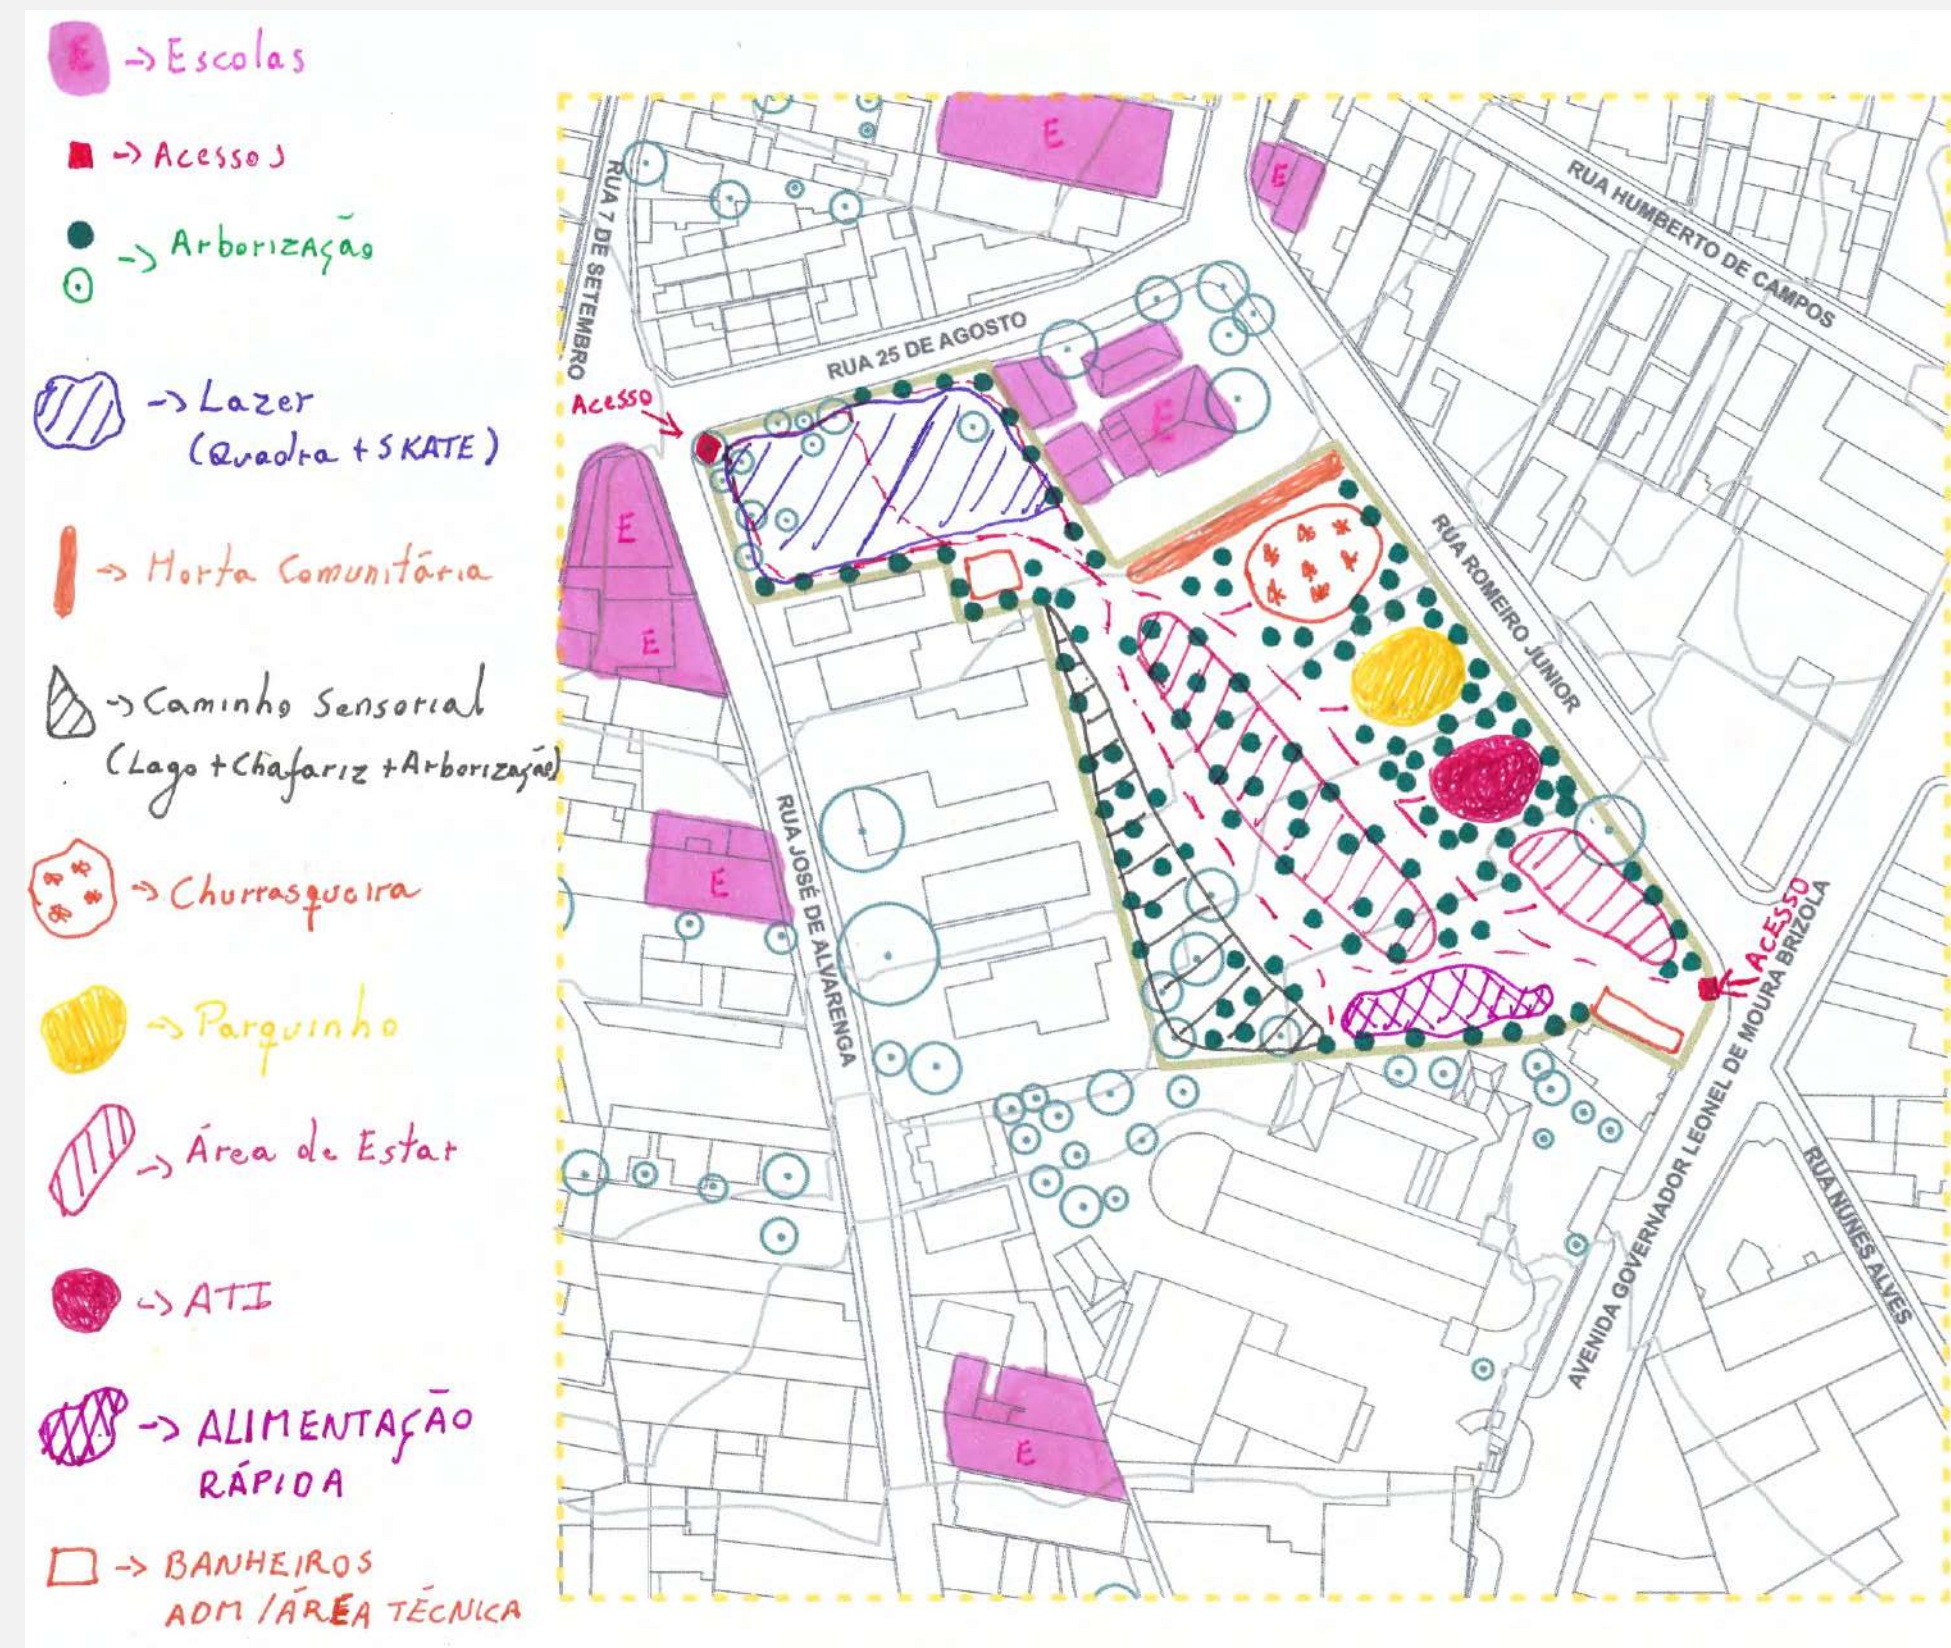 E → Escolas
→ Acessos
→ Arborização
→ Lazer
(Quadra + SKATE)
→ Horta Comunitária
→ Caminho Sensorial
(Lago + Chafariz + Arborização)
→ Churrasqueira
→ Parquinho
→ Área de Estar
→ ATI
→ ALIMENTAÇÃO
RÁPIDA
→ BANHEIROS
ADM / ÁREA TÉCNICA
E
E
RUA 7 DE SETEMBRO
RUA HUMBERTO DE CAMPOS
RUA 25 DE AGOSTO
Acesso
E
E
E
RUA ROMEIRO JUNIOR
E
RUA JOSÉ DE ALVARENGA
ACESSO
AVENIDA GOVERNADOR LEONEL DE MOURA BRIZOLA
RUA NUNES ALVES
E